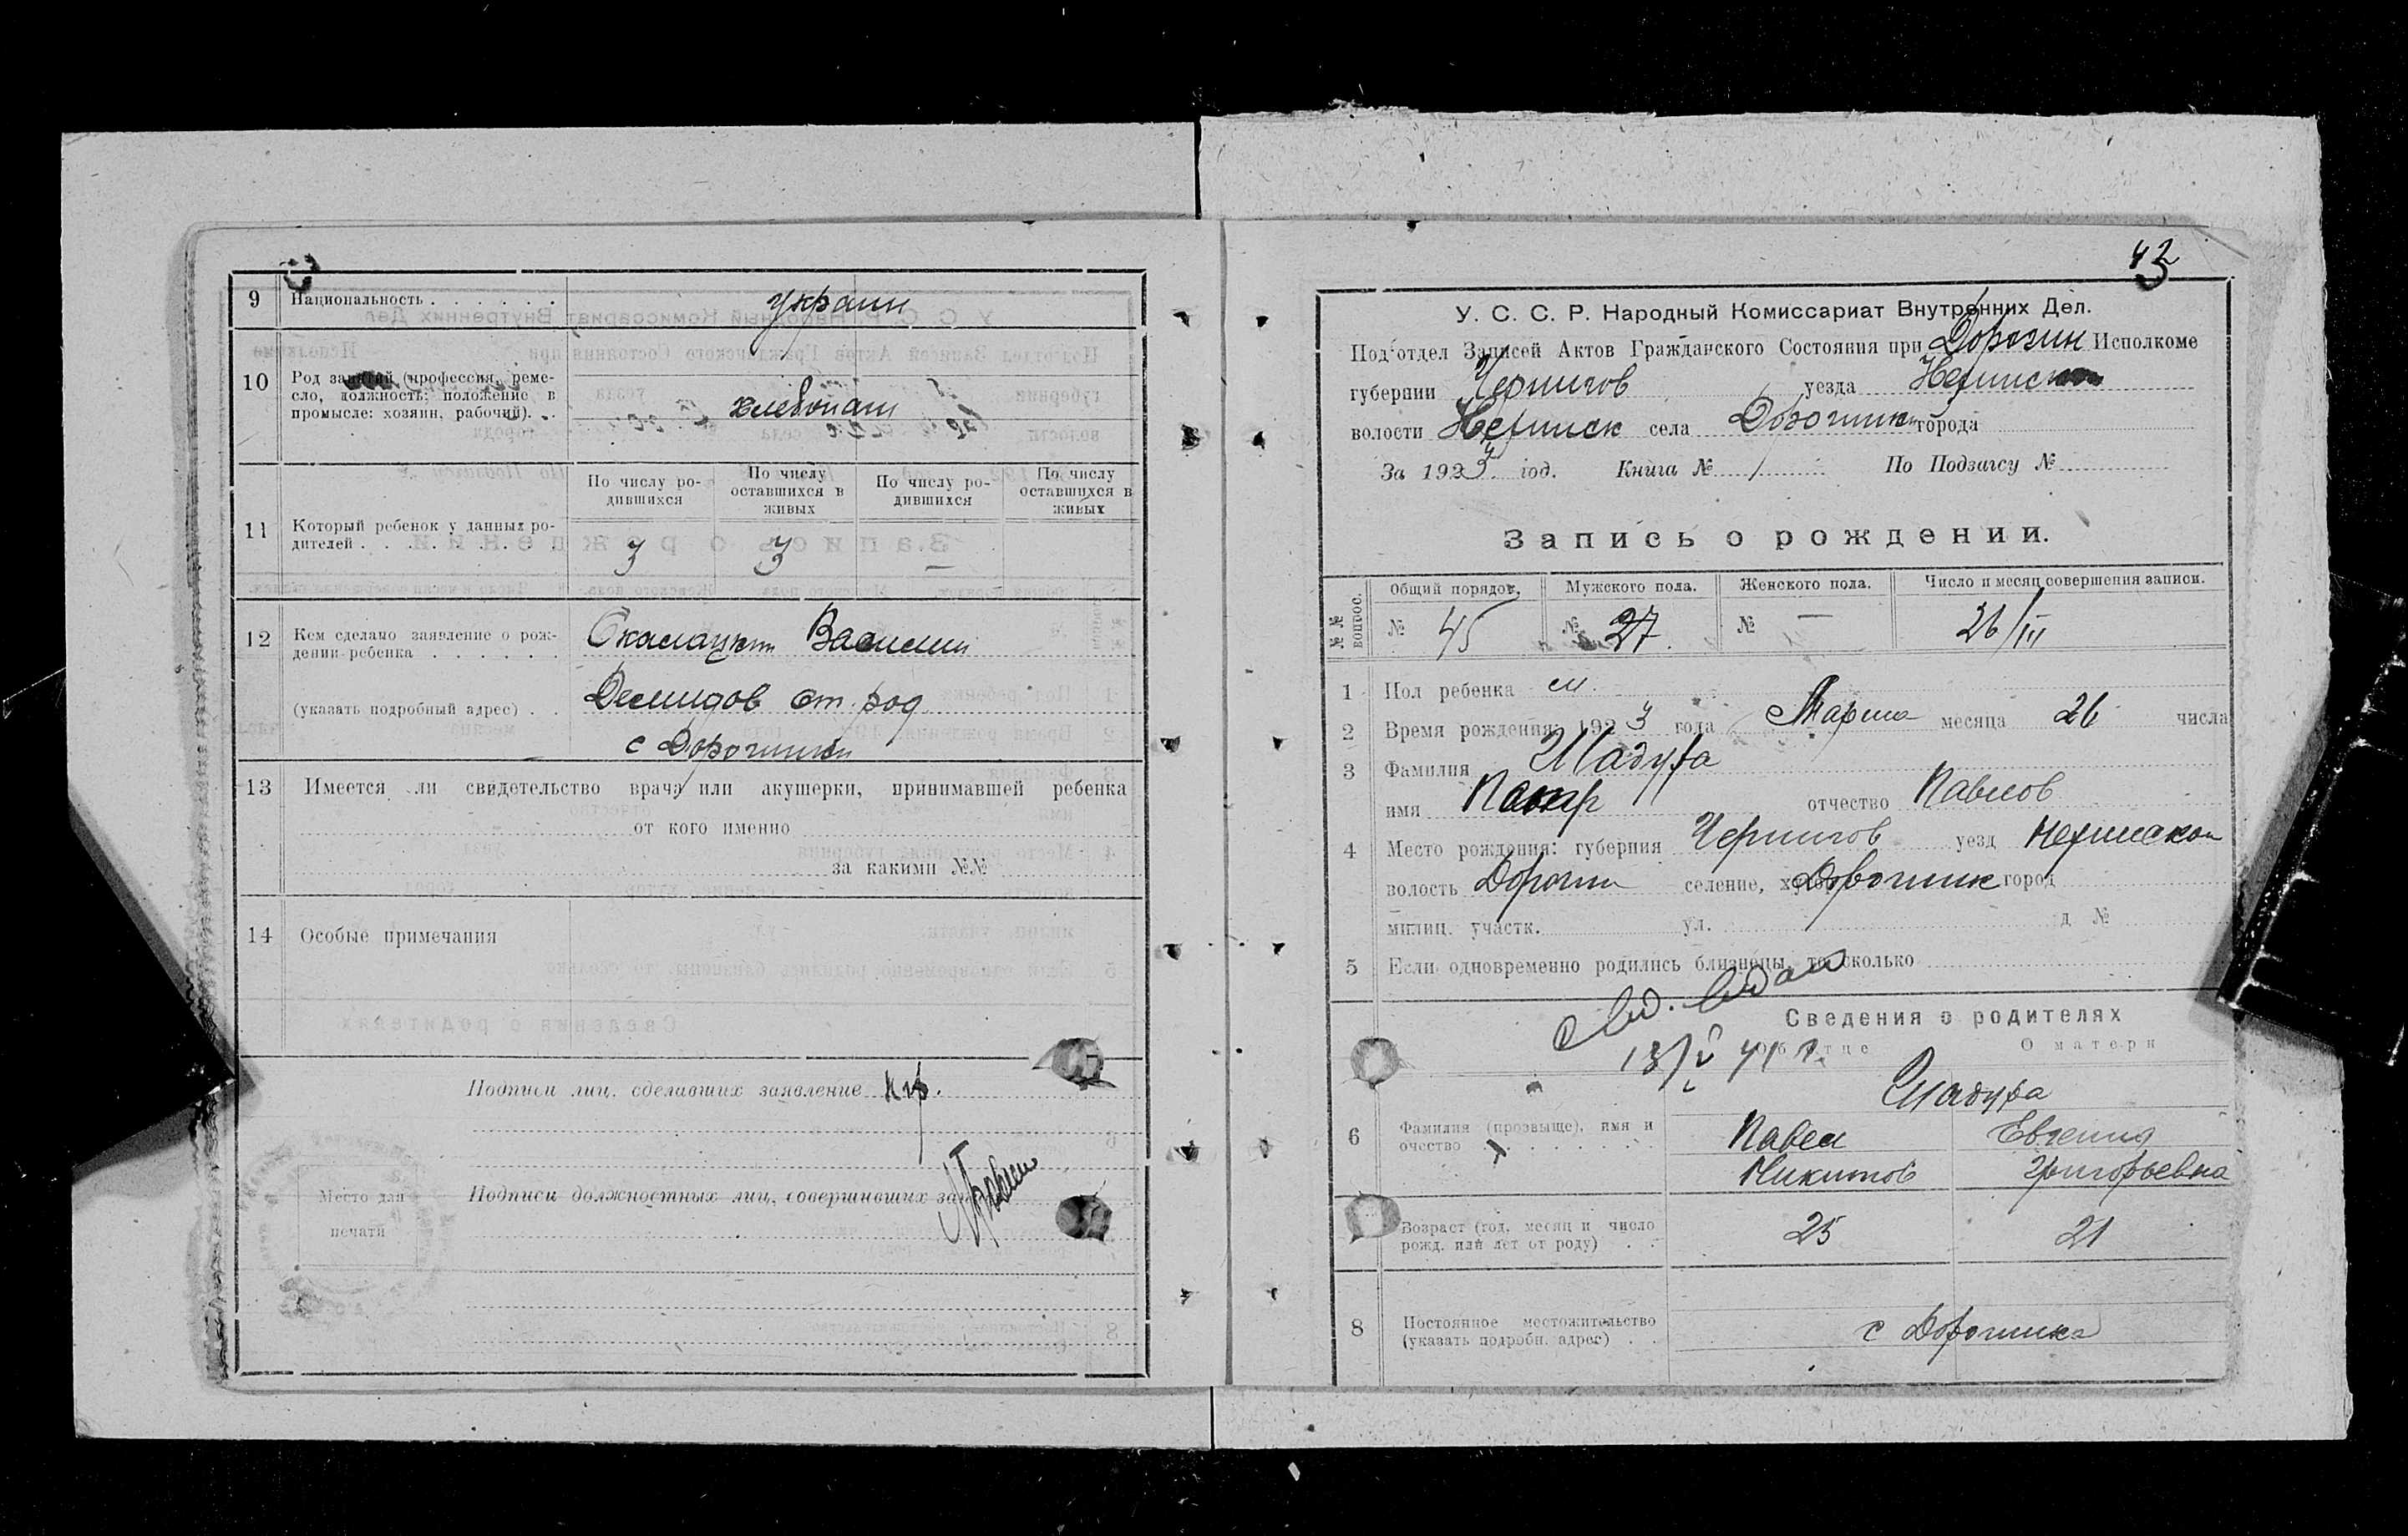 9 Национальность . . . . . . украин
10 Род занятий (профессия, реме-
сло, должность; положение в
промысле: хозяин, рабочий). . . хлебопаш
По числу ро-
дившихся
По числу
оставшихся в
живых
По числу ро-
дившихся
По числу
оставшихся в
живых
11 Который ребенок у данных ро-
дителей . . . . . . . . . 3 3 —
12 Кем сделано заявление о рож-
дении ребенка . . . . . . Василий
(указать подробный адрес) . . Демидов от. род
с Дорогинки
13 Имеется ли свидетельство врача или акушерки, принимавшей ребенка
от кого именно
за какими №№
14 Особые примечания
Подписи лиц, сделавших заявление
Подписи должностных лиц, совершивших
Место для
печати
42
У. С. С. Р. Народный Комиссариат Внутренних Дел.
Под'отдел Записей Актов Гражданского Состояния при Дорогин Исполкоме
губернии Чернигов уезда
волости Нежинск села Дорогинк города
За 1923 год. Книга № 1 По Подзагсу №
Запись о рождении.
№№ вопрос.
Общий порядок. Мужского пола. Женского пола. Число и месяц совершения записи.
№ 45 № 27 № — 26/III
1 Пол ребенка м.
2 Время рождения: 1923 года Марта месяца 26 числа
3 Фамилия Шадура
имя отчество Павлов
4 Место рождения: губерния Чернигов уезд Нежинской
волость Дорогин селение, Дорогинк город
милиц. участк. ул. д №
5 Если одновременно родились близнецы, то сколько
Сведения о родителях
Об отце О матери
Шадура
6 Фамилия (прозвище), имя и
очество . . . . . . Павел Евгения
Никитов Григорьевна
Возраст (год, месяц и число
рожд. или лет от роду) . . 25 21
8 Постоянное местожительство
(указать подробн. адрес) . . с Дорогинка